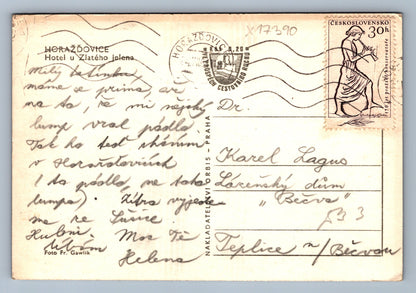 X17390
HORAŽĎOVICE
Hotel u Zlatého jelena
HORAŽĎOVICE
ČESKOSLOVENSKO
30h
Milý tatínku
máme se prima, až
na to, že mi nějaký
lump vzal pádlo.
Tak ho teď sháním
v Horažďovicích
(to pádlo, ne toho
lumpa). Zítra vyjede-
me ze Sušice
Hubni. Moc Tě
líbám Helena
Foto Fr. Gawlik
NAKLADATELSTVÍ ORBIS - PRAHA
Dr.
Karel Lagus
Lázeňský dům
„Bečva"
Teplice n/Bečvou